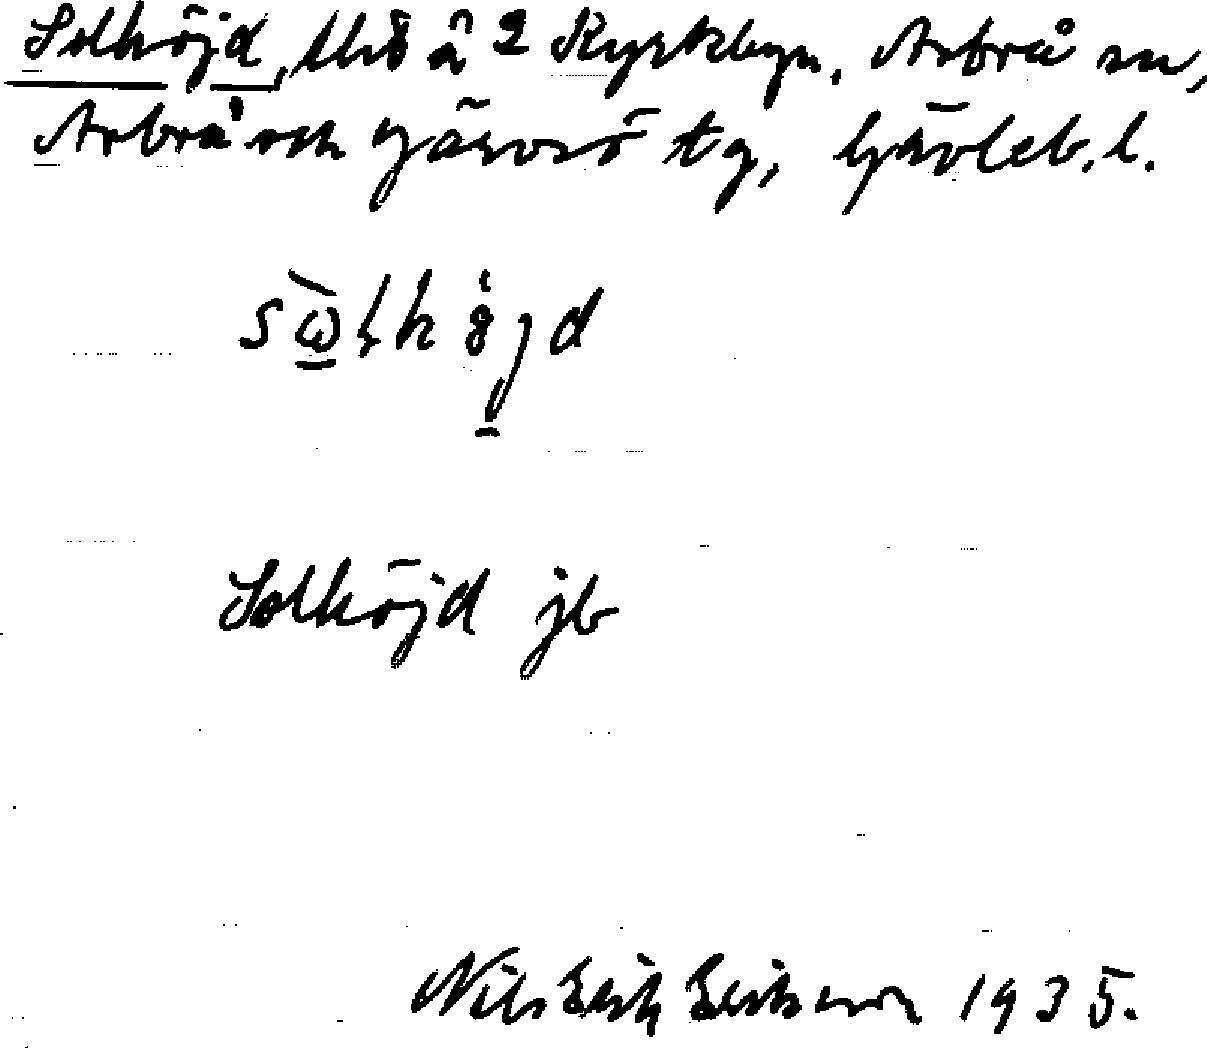 Solhöjd, lht å 2 Kyrkbyn, Arbrå sn,
Arbrå och Järvsö tg, Gävleb. l.
Solhöjd jb
Nils Erik Eriksson 1935.